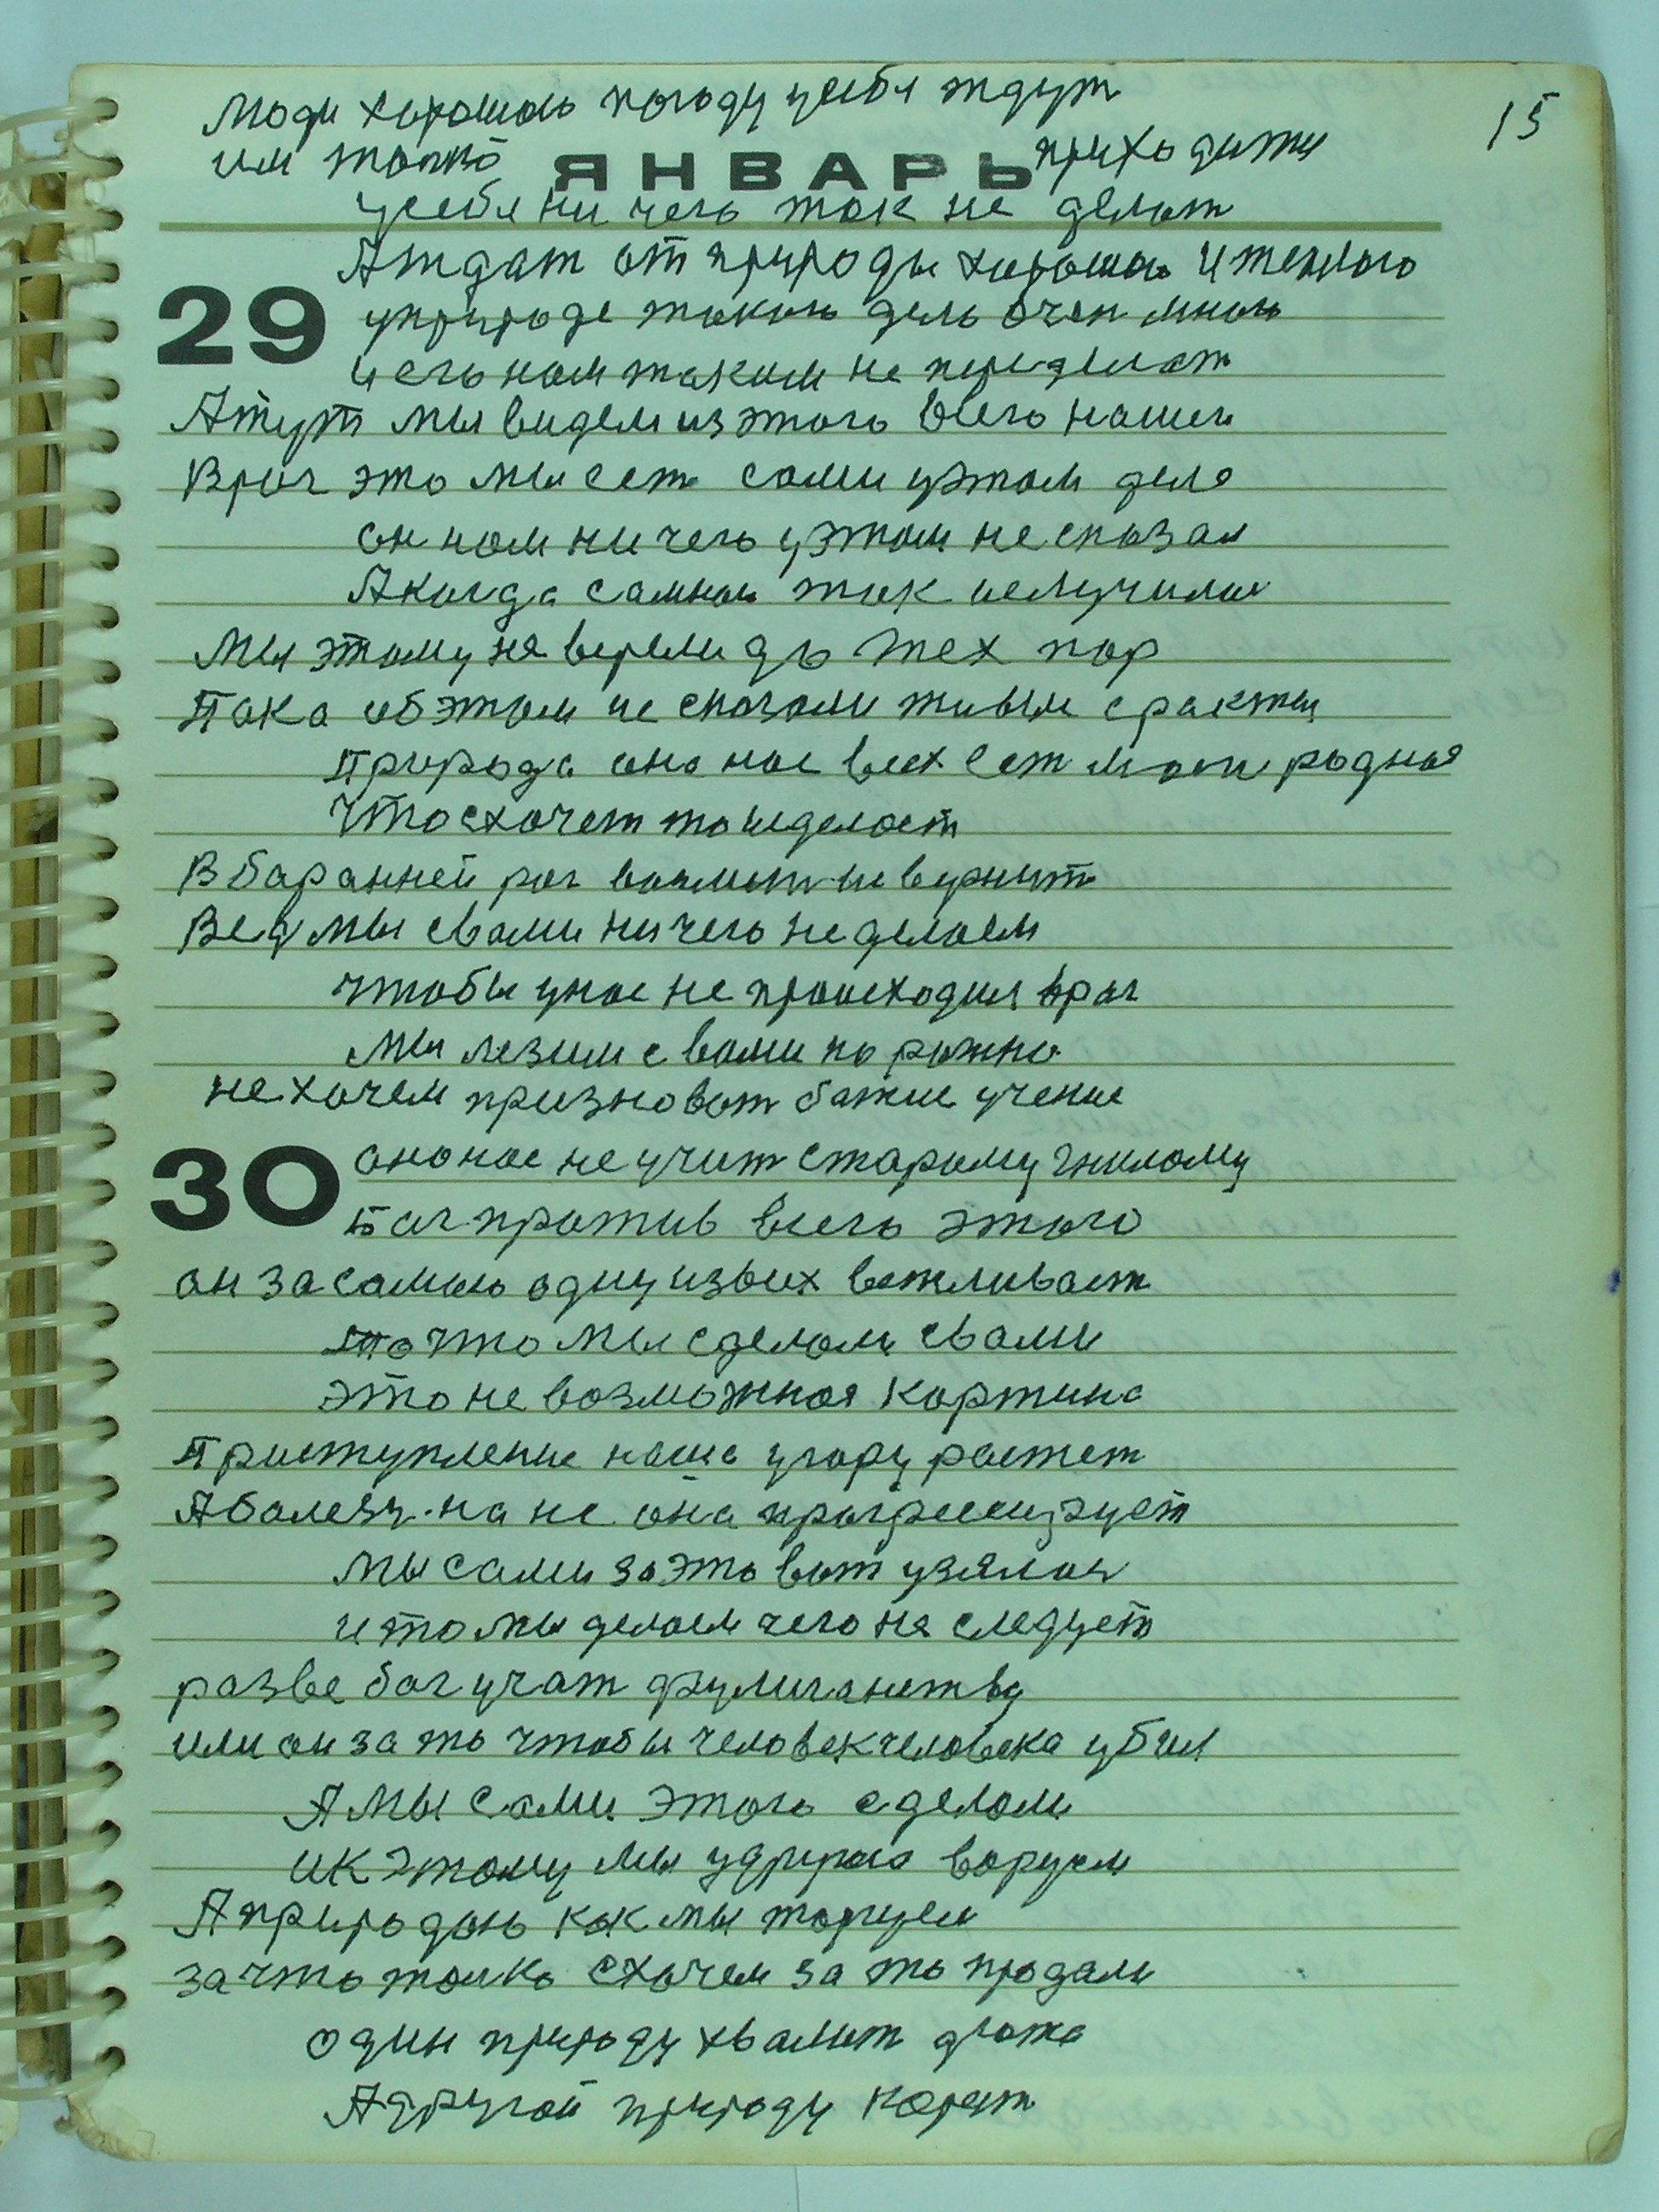 Люди хорошою погоду усебя ждут
15
им толко ЯНВАРЬ приходити
усебя ни чего так не делат
Аждат от природы хорошою и теплого
29
уприроде такого дела очен много
и его нам таким не переделат
Атут мы видем из этого всего нашего
Враг это мы сет сами уэтом деле
он нам ни чего уэтом не сказал
Акогда самною так ислучилос
Мы этому не верели до тех пор
Пака обэтом не сказали живые с
Природа она нас всех ест мат родная
Чтосхочет то исделает
Вбаранней рог возмет и вернит
Вед мы свами ни чего не делаем
чтобы унас не происходил враг
мы лезим свами на рожно
не хочем признават бажие учение
30
ононас не учит старому гнилому
Бог против всего этого
он за самою одну извих
то что мы сделали свами
это не возможная картина
Приступление наше угору растет
Аболезн на не она прогресирует
мы сами за это вот узялис
и то мы делаем чего не следует
разве бог учат фулиганству
или он за то чтобы человек человека убил
А мы сами этого сделали
ик этому мы удруга воруем
Априродою как мы торгуем
за что толко схочем за то продали
один природу хвалит даже
Адругой природу корит